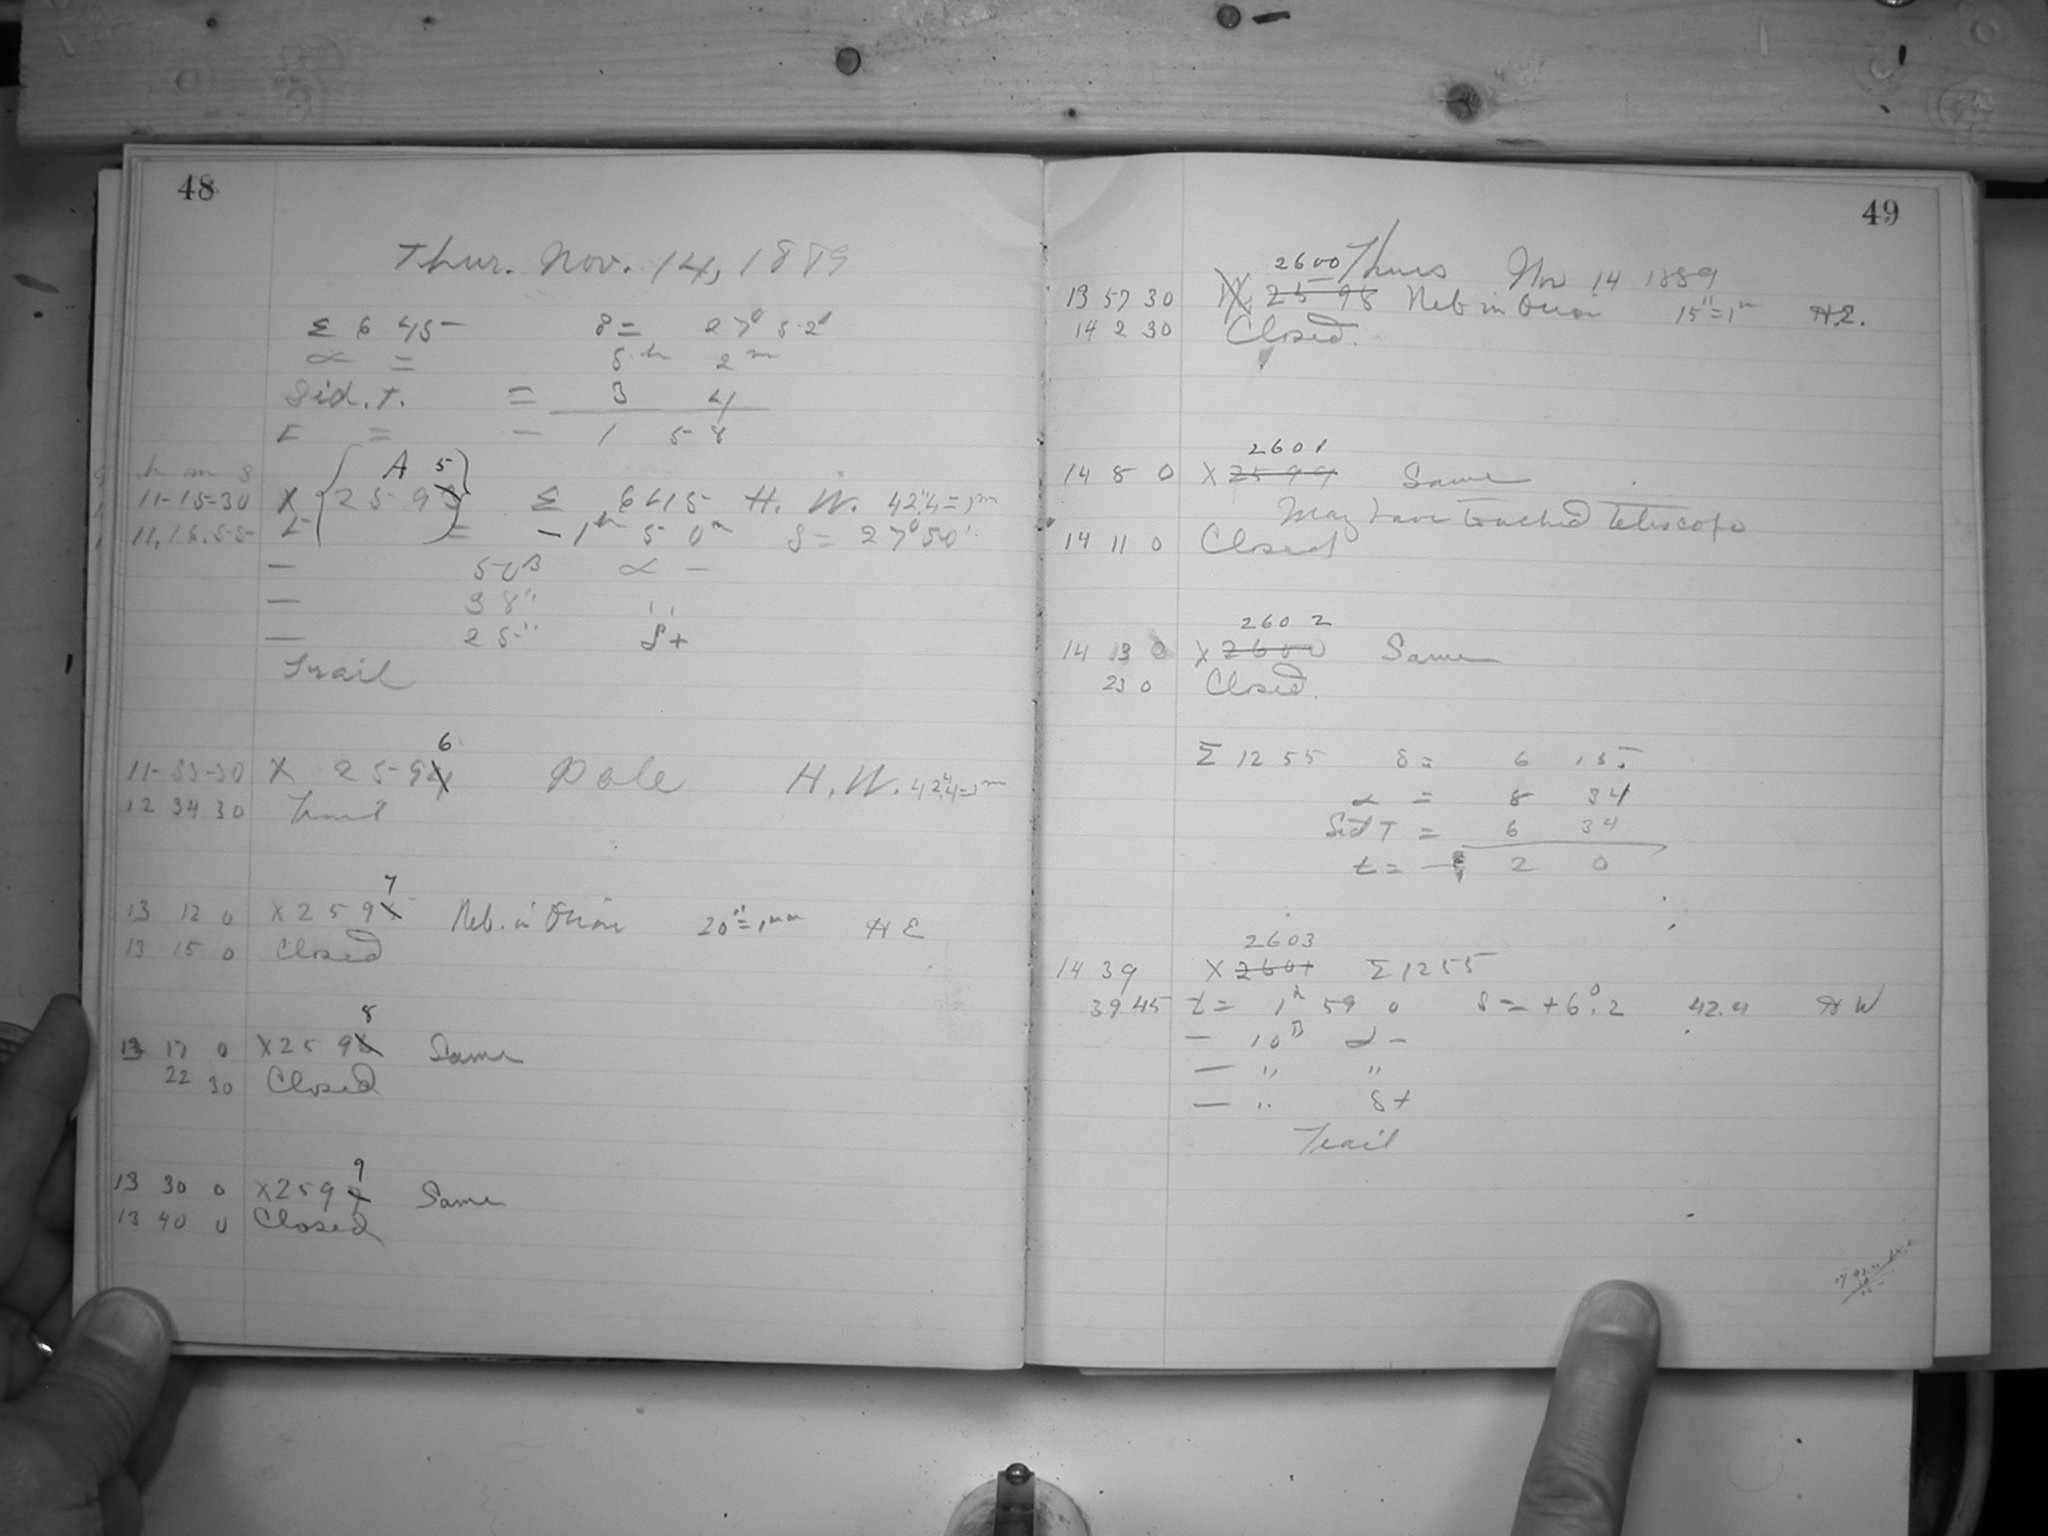 48
Thur. Nov. 14, 1889
Σ 645 δ = 27° 52'
α = 5h 2m
Sid. T. = 3 4
t = - 1 58
h m s A 5
11-15-30 X 2593 Σ 645 H. W. 42".4=1mm
11.16.55 t = -1h 50m δ = 27°50'
- 50B α -
- 38" "
- 25" δ+
Trail
6
11-33-30 X 2594 Pole H. W. 42".4=1mm
12 34 30 Trail
7
13 12 0 X 2595 Neb. in Orion 20"=1mm H E
13 15 0 Closed
8
13 17 0 X 2596 Same
22 30 Closed
9
13 30 0 X 2597 Same
13 40 0 Closed
49
Thurs Nov 14 1889
2600
13 57 30 X 2598 Neb in Orion 15"=1m H.E.
14 2 30 Closed.
2601
14 8 0 X 2599 Same
May have touched telescope
14 11 0 Closed
2602
14 13 0 X 2600 Same
23 0 Closed.
Σ 1255 δ = 6 15
α = 8 34
Sid T = 6 34
t = - 2 0
2603
14 39 X 2601 Σ 1255
39 45 t = 1h 59 0 δ = +6°.2 42.4 H W
- 10B α -
- " "
- " δ+
Trail